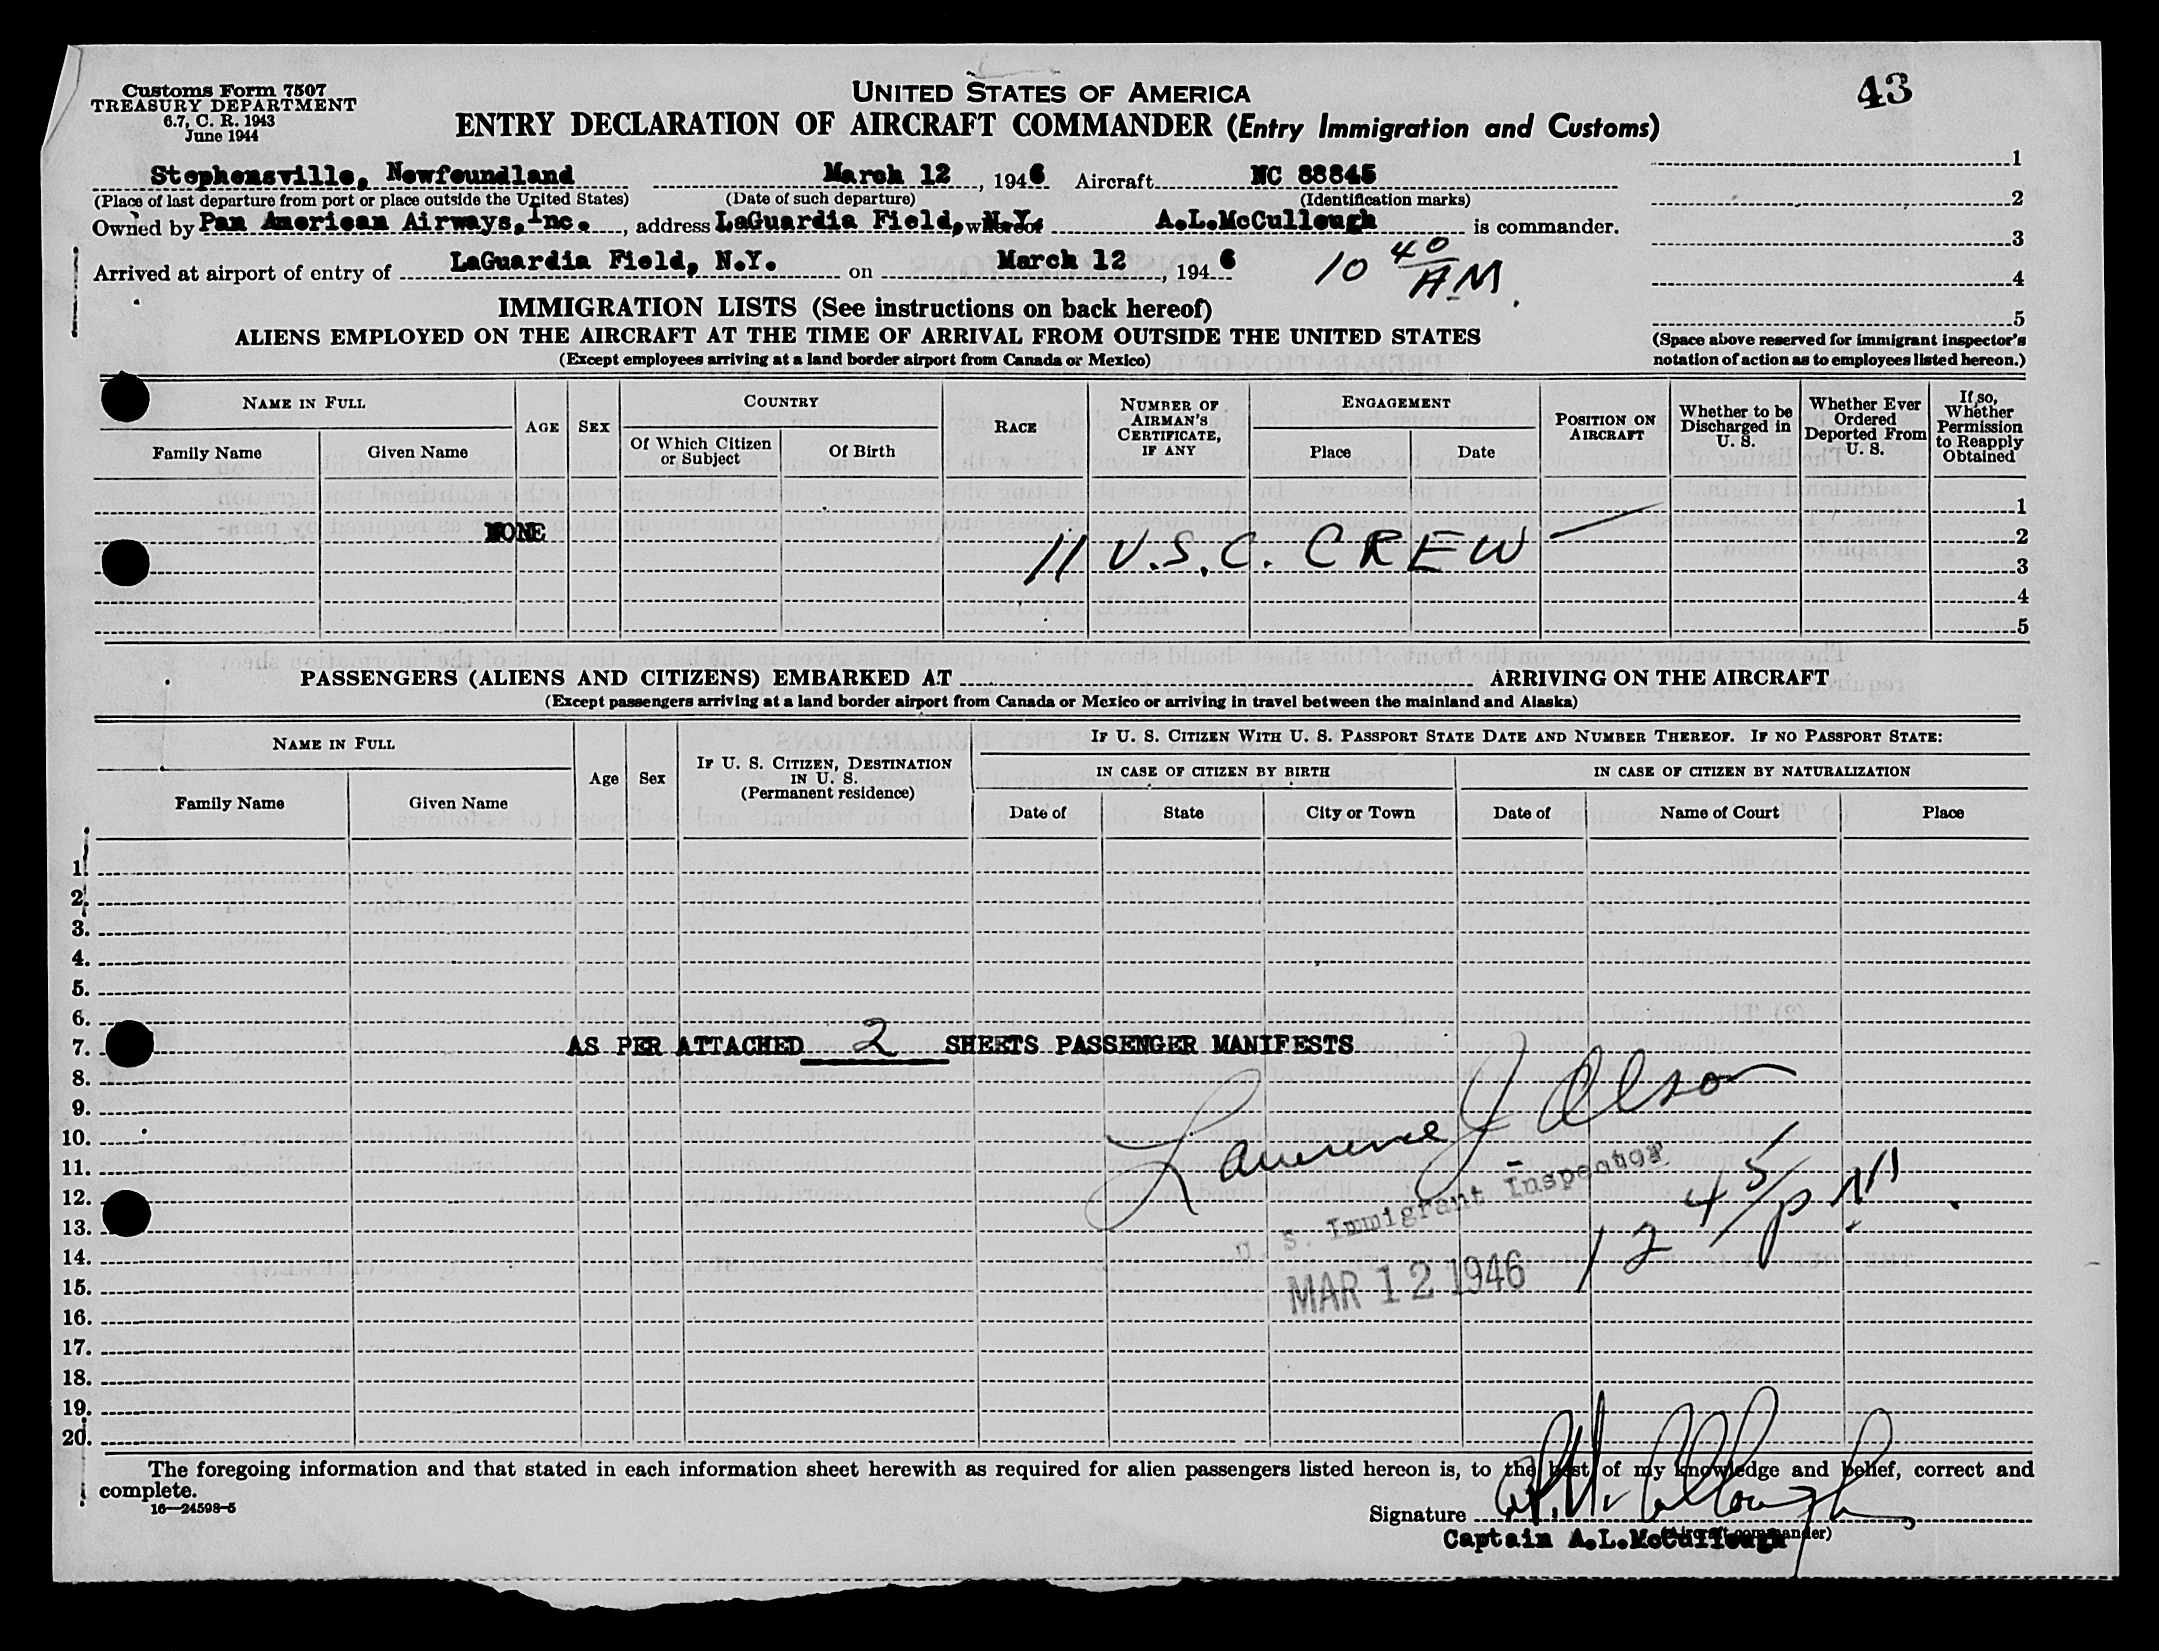 Customs Form 7507
TREASURY DEPARTMENT
6.7, C. R. 1943
June 1944
UNITED STATES OF AMERICA
ENTRY DECLARATION OF AIRCRAFT COMMANDER (Entry Immigration and Customs)
43
Stephensville, Newfoundland March 12, 1946 Aircraft NC 88845
(Place of last departure from port or place outside the United States) (Date of such departure) (Identification marks)
Owned by Pan American Airways, Inc., address LaGuardia Field, N.Y. whereof A.L.McCullough is commander.
Arrived at airport of entry of LaGuardia Field, N.Y. on March 12, 1946 10 40/AM.
1
2
3
4
5
(Space above reserved for immigrant inspector's
notation of action as to employees listed hereon.)
IMMIGRATION LISTS (See instructions on back hereof)
ALIENS EMPLOYED ON THE AIRCRAFT AT THE TIME OF ARRIVAL FROM OUTSIDE THE UNITED STATES
(Except employees arriving at a land border airport from Canada or Mexico)
NAME IN FULL
Family Name
Given Name
AGE
SEX
COUNTRY
Of Which Citizen
or Subject
Of Birth
RACE
NUMBER OF
AIRMAN'S
CERTIFICATE,
IF ANY
ENGAGEMENT
Place
Date
POSITION ON
AIRCRAFT
Whether to be
Discharged in
U. S.
Whether Ever
Ordered
Deported From
U. S.
If so,
Whether
Permission
to Reapply
Obtained
1
NONE 2
11 U.S.C. CREW — 3
4
5
PASSENGERS (ALIENS AND CITIZENS) EMBARKED AT ARRIVING ON THE AIRCRAFT
(Except passengers arriving at a land border airport from Canada or Mexico or arriving in travel between the mainland and Alaska)
NAME IN FULL
Family Name
Given Name
Age
Sex
IF U. S. CITIZEN, DESTINATION
IN U. S.
(Permanent residence)
IF U. S. CITIZEN WITH U. S. PASSPORT STATE DATE AND NUMBER THEREOF. IF NO PASSPORT STATE:
IN CASE OF CITIZEN BY BIRTH
IN CASE OF CITIZEN BY NATURALIZATION
Date of
State
City or Town
Date of
Name of Court
Place
1.
2.
3.
4.
5.
6.
7. AS PER ATTACHED 2 SHEETS PASSENGER MANIFESTS
8.
9.
10.
11.
12.
13.
14.
15.
16.
17.
18.
19.
20.
Lawrence J Olson
U. S. Immigrant Inspector
12 45/PM.
MAR 12 1946
The foregoing information and that stated in each information sheet herewith as required for alien passengers listed hereon is, to the best of my knowledge and belief, correct and
complete.
16—24598-5
Signature A.L. McCullough
(Aircraft commander)
Captain A.L.McCullough